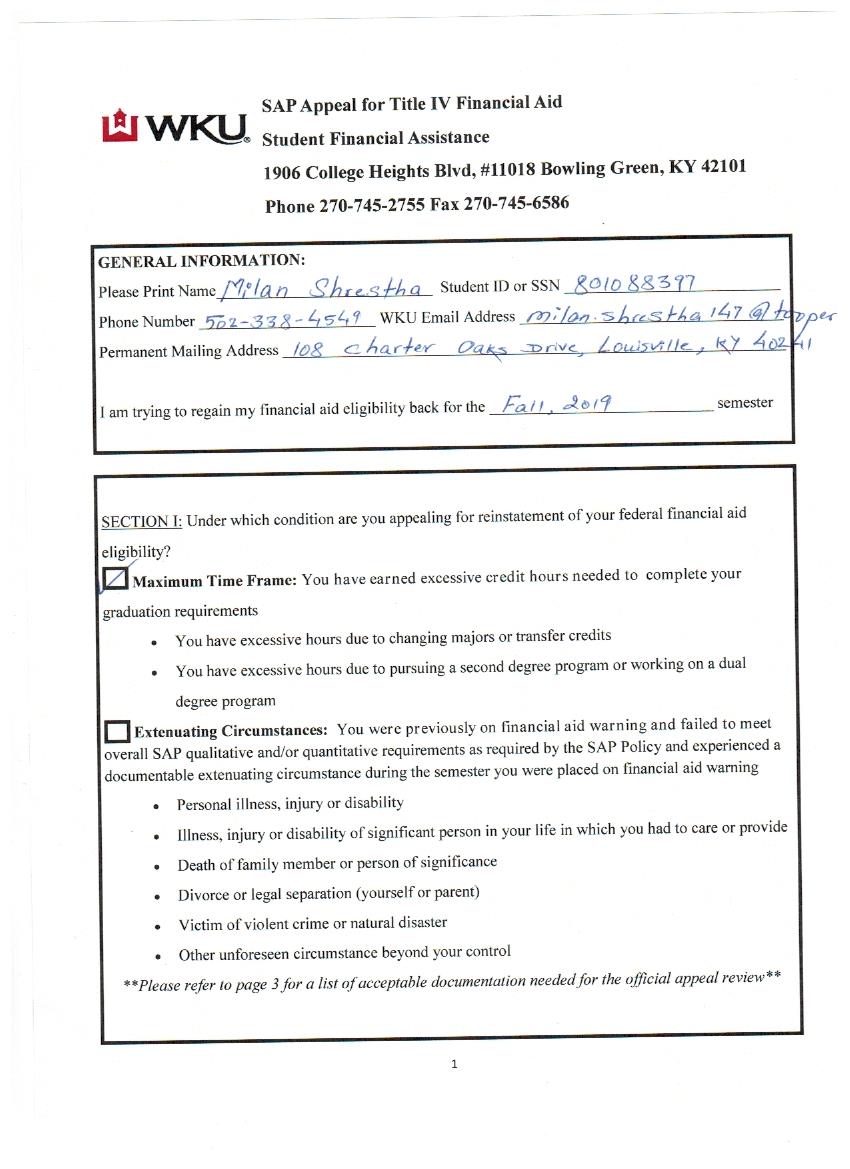 WKU®
SAP Appeal for Title IV Financial Aid
Student Financial Assistance
1906 College Heights Blvd, #11018 Bowling Green, KY 42101
Phone 270-745-2755 Fax 270-745-6586
GENERAL INFORMATION:
Please Print Name Milan Shrestha Student ID or SSN 801088397
Phone Number 502-338-4549 WKU Email Address milan.shrestha147@topper
Permanent Mailing Address 108 Charter Oaks Drive, Louisville, KY 40241
I am trying to regain my financial aid eligibility back for the Fall, 2019 semester
SECTION I: Under which condition are you appealing for reinstatement of your federal financial aid
eligibility?
Maximum Time Frame: You have earned excessive credit hours needed to complete your
graduation requirements
• You have excessive hours due to changing majors or transfer credits
• You have excessive hours due to pursuing a second degree program or working on a dual
degree program
Extenuating Circumstances: You were previously on financial aid warning and failed to meet
overall SAP qualitative and/or quantitative requirements as required by the SAP Policy and experienced a
documentable extenuating circumstance during the semester you were placed on financial aid warning
• Personal illness, injury or disability
• Illness, injury or disability of significant person in your life in which you had to care or provide
• Death of family member or person of significance
• Divorce or legal separation (yourself or parent)
• Victim of violent crime or natural disaster
• Other unforeseen circumstance beyond your control
**Please refer to page 3 for a list of acceptable documentation needed for the official appeal review**
1